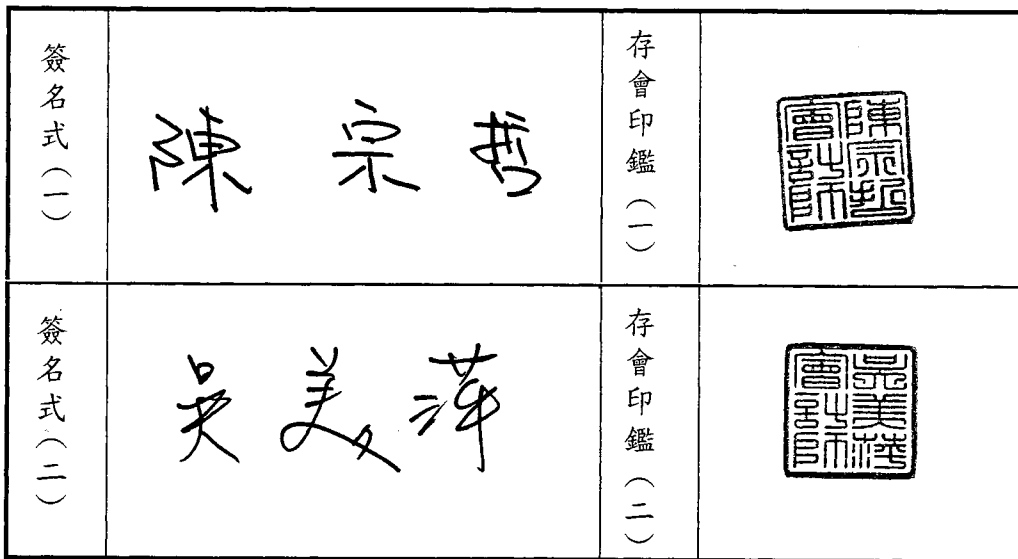 簽名式（一）
陳宗哲
存會印鑑（一）
陳宗哲會計師
簽名式（二）
吳美萍
存會印鑑（二）
吳美萍會計師